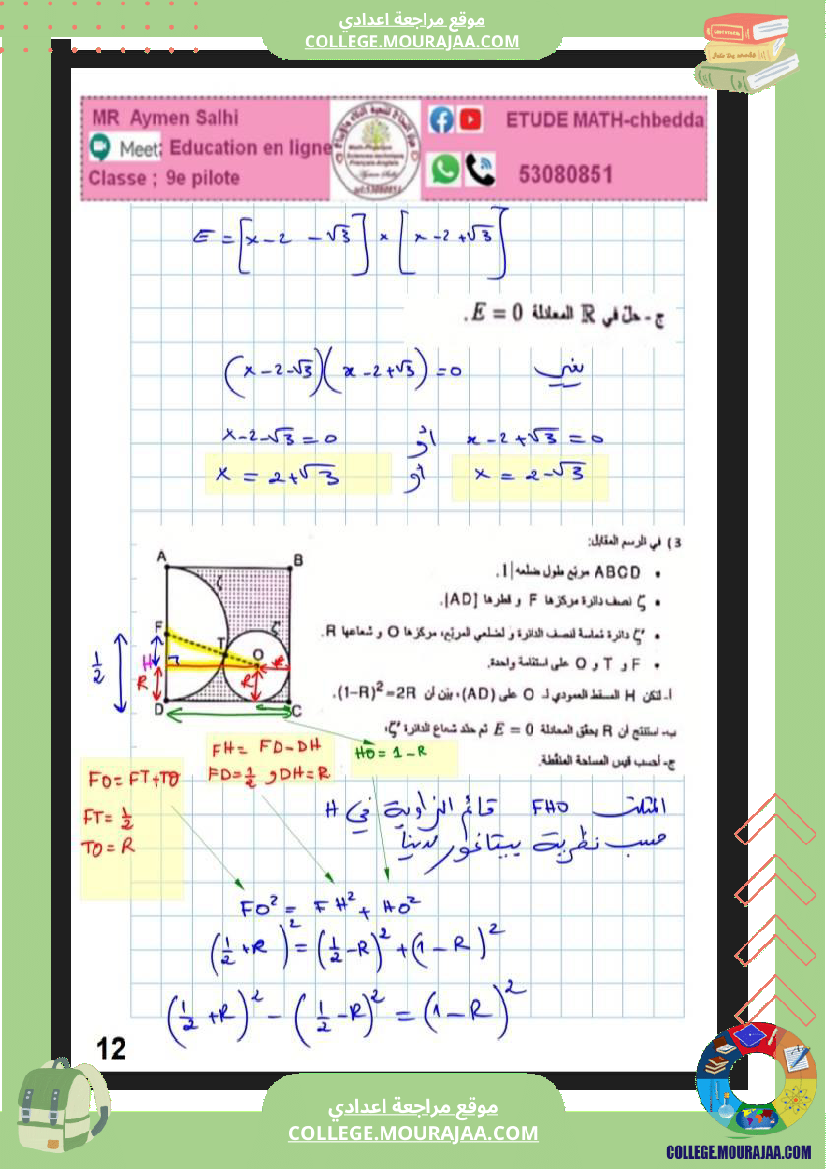 موقع مراجعة اعدادي
COLLEGE.MOURAJAA.COM
MR Aymen Salhi
Meet: Education en ligne
Classe ; 9e pilote
ETUDE MATH-chbedda
53080851
E = [x-2 -√3] × [x-2+√3]
ج - حلّ في ℝ المعادلة E = 0.
يعني (x-2-√3)(x-2+√3) = 0
x-2-√3 = 0 أو x-2+√3 = 0
x = 2+√3 أو x = 2-√3
3) في الرسم المقابل:
• ABCD مربّع طول ضلعه 1.
• ζ نصف دائرة مركزها F و قطرها [AD].
• ζ' دائرة مماسة لنصف الدائرة و لضلعي المربّع، مركزها O و شعاعها R.
• F و T و O على استقامة واحدة.
أ- لتكن H المسقط العمودي لـ O على (AD)، بيّن أن (1-R)²=2R.
ب- استنتج أن R يحقق المعادلة E = 0 ثم حدّد شعاع الدائرة ζ'.
ج- أحسب قيس المساحة المنقّطة.
A
B
ζ
F
T
ζ'
O
1/2
H
R
R
R
D
C
FO = FT+TO
FT = 1/2
TO = R
FH = FD-DH
FD = 1/2 و DH = R
HO = 1-R
المثلث FHO قائم الزاوية في H
حسب نظرية بيتاغور لدينا
FO² = FH² + HO²
(1/2+R)² = (1/2-R)² + (1-R)²
(1/2+R)² - (1/2-R)² = (1-R)²
12
موقع مراجعة اعدادي
COLLEGE.MOURAJAA.COM
COLLEGE.MOURAJAA.COM